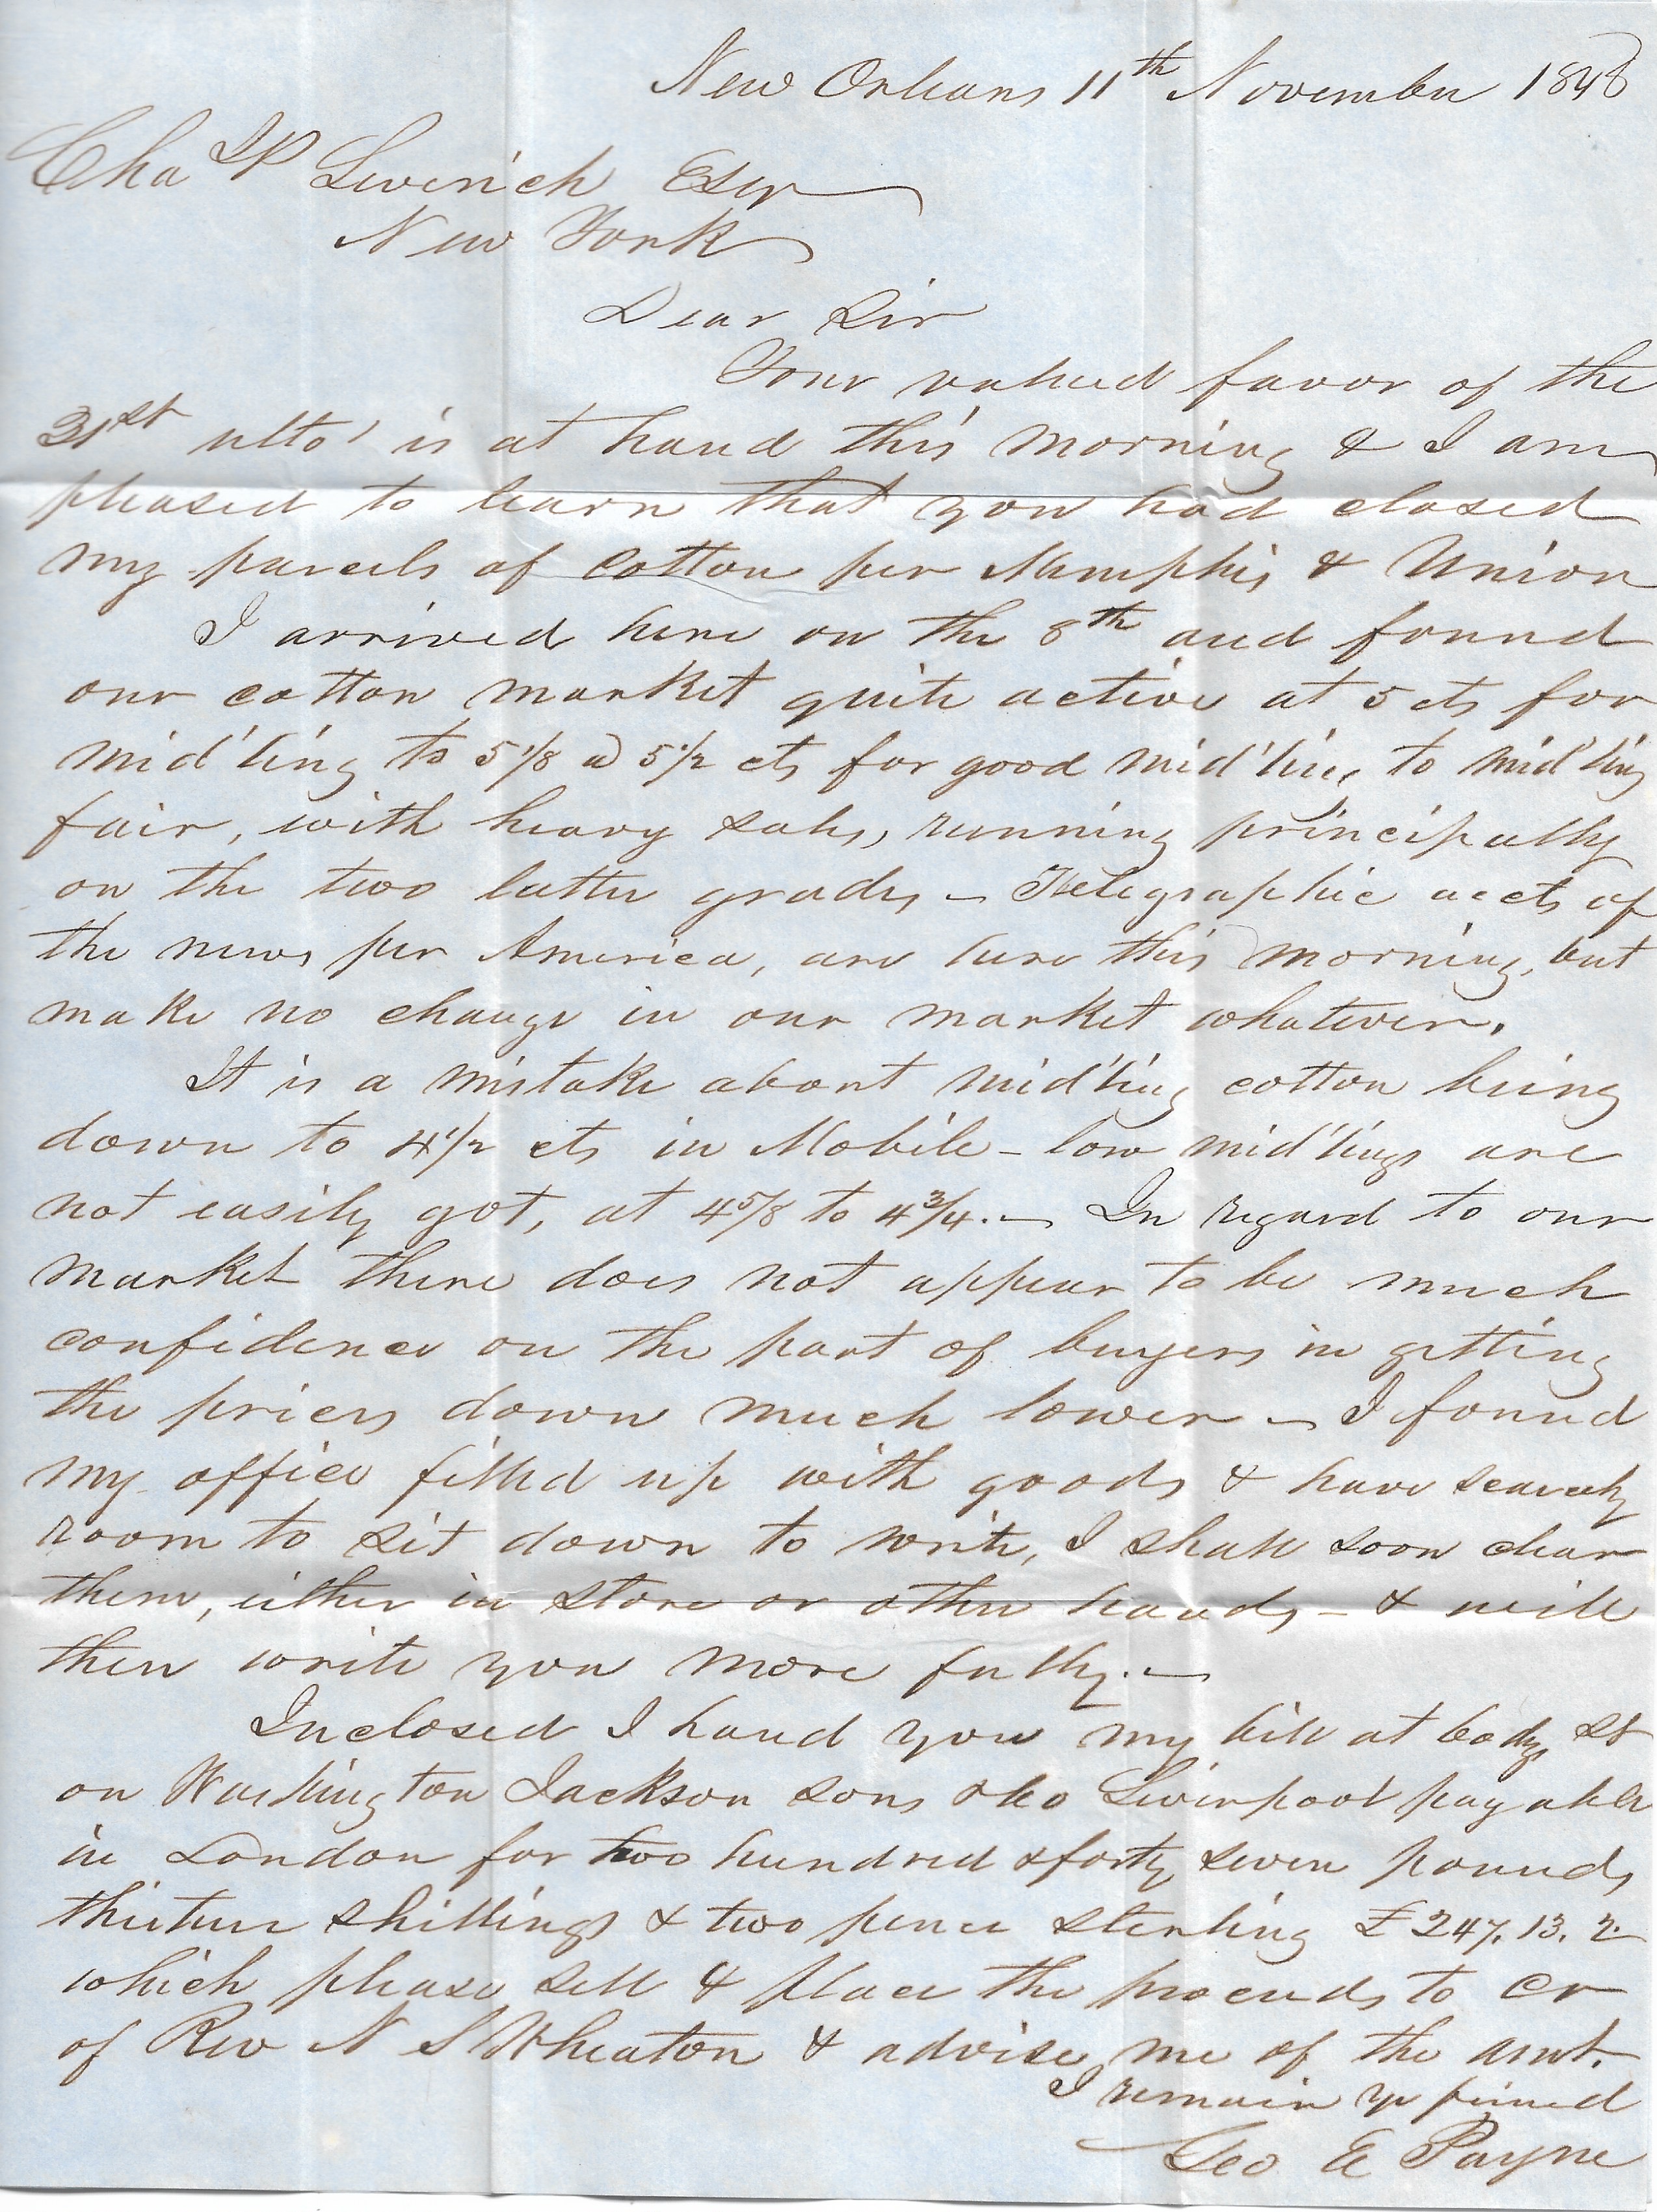 New Orleans 11th November 1848
Chas P Leverich Esqr
New York
Dear Sir
Your valued favor of the
31st ulto' is at hand this morning & I am
pleased to learn that you had closed
my parcels of cotton per Memphis & Union
I arrived here on the 8th and found
our cotton market quite active at 5 cts for
mid'ling to 5 1/8 a 5 1/2 cts for good mid'ling to mid'ling
fair, with heavy sales, running principally
on the two latter grades - Telegraphic accts of
the news per America, are here this morning, but
make no change in our market whatever.
It is a mistake about mid'ling cotton being
down to 4 1/2 cts in Mobile - low mid'lings are
not easily got, at 4 5/8 to 4 3/4. - In regard to our
market there does not appear to be much
confidence on the part of buyers in getting
the prices down much lower - I found
my office filled up with goods & have scarcely
room to sit down to write, I shall soon clear
them, either in store or other hands - & will
then write you more fully. -
Inclosed I hand you my bill at 60 dys St
on Washington Jackson Sons & Co Liverpool payable
in London for two hundred & forty seven pounds
thirteen shillings & two pence sterling £247.13.2
which please sell & place the proceeds to cr
of Rev N S Wheaton & advise me of the amt.
I remain yr friend
Geo E Payne